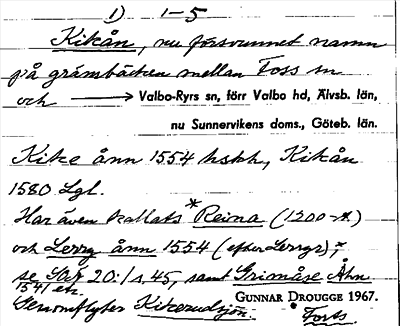 1) 1-5
Kikån, nu försvunnet namn
på gränsbäcken mellan Foss sn
och → Valbo-Ryrs sn, förr Valbo hd, Älvsb. län,
nu Sunnervikens doms., Göteb. län.
Kike ånn 1554 hskh, Kikån
1580 Lgl.
Har även kallats *Reina (1200-t.)
och Lerrg ånn 1554 (efter Lerrgr);
se 20:1 s. 45, samt Grimåse Åhn
1541 etc.
Genomflyter Kikerudsjön.
GUNNAR DROUGGE 1967.
Forts